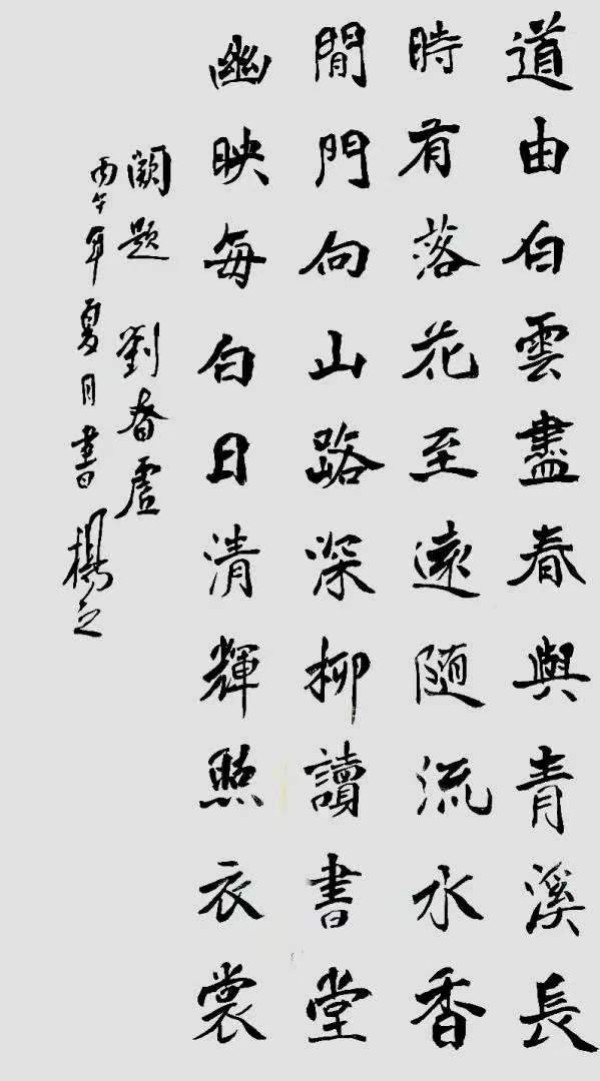 道由白雲盡春與青溪長
時有落花至遠随流水香
閒門向山路深柳讀書堂
幽映每白日清輝照衣裳
闕題 劉眘虛
丙午年夏月書 楊之